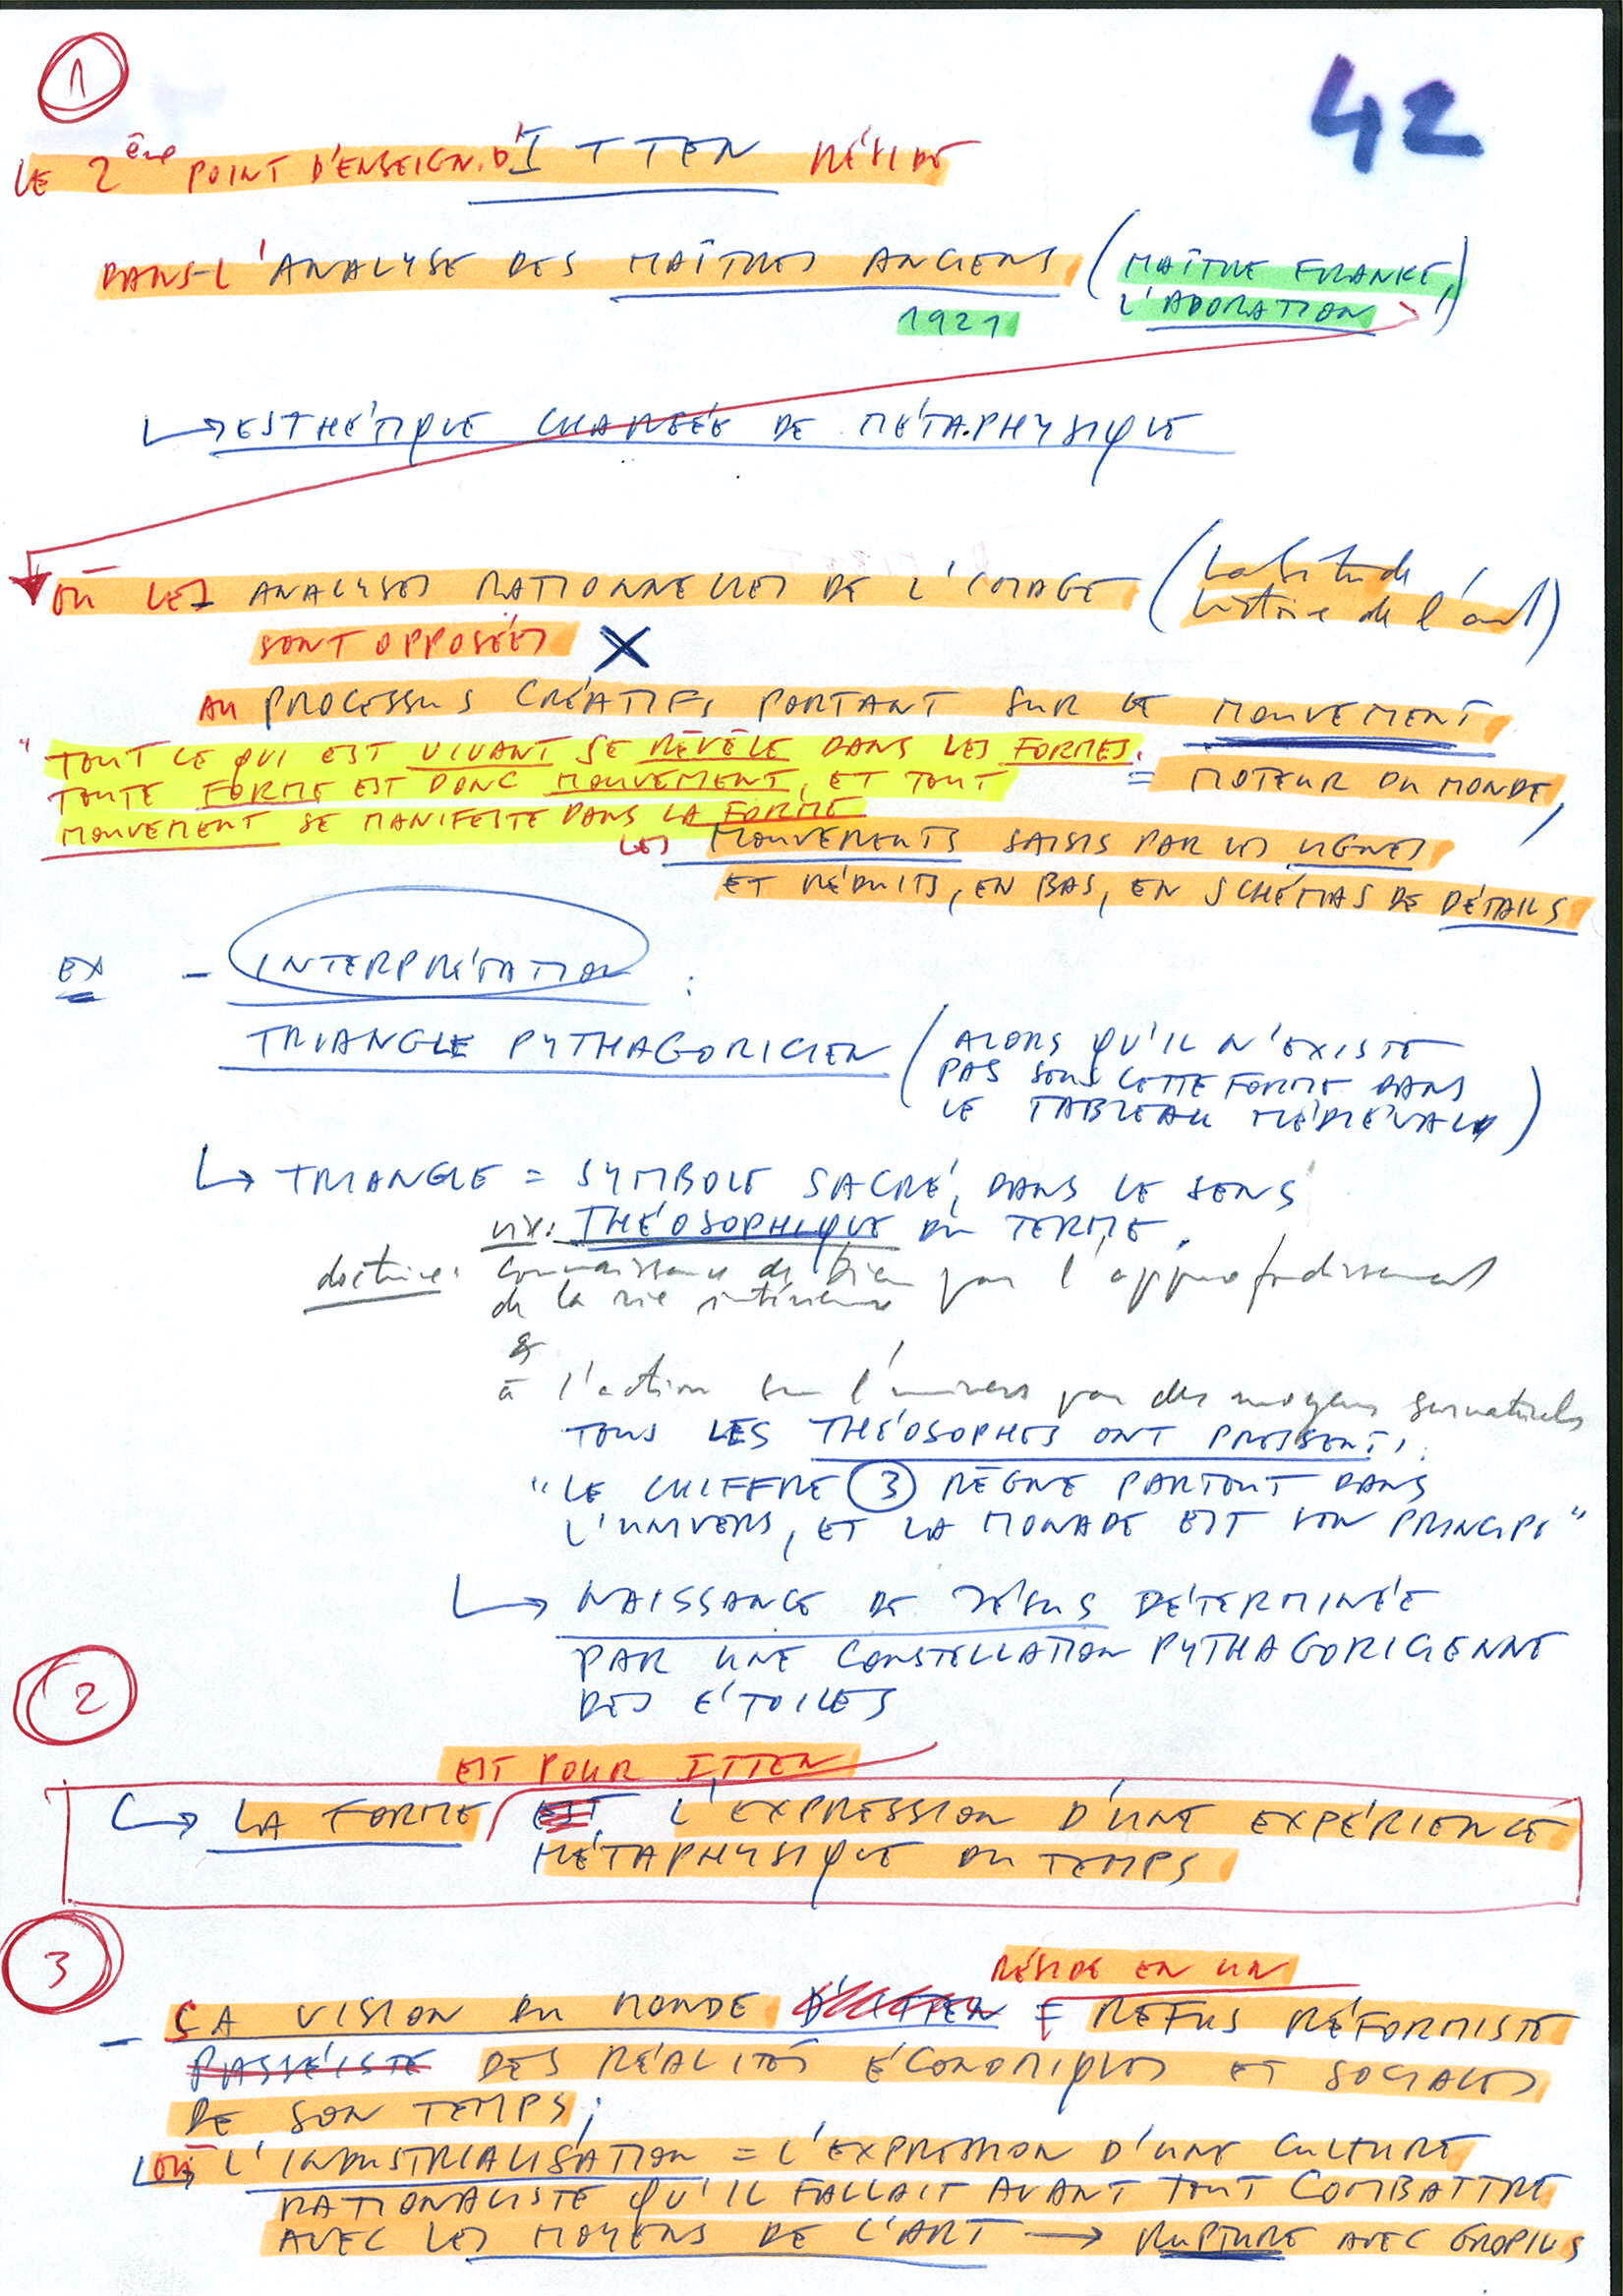 1
42
LE 2ème POINT D'ENSEIGN. D'ITTEN RÉSIDE
DANS L'ANALYSE DES MAÎTRES ANCIENS (MAÎTRE FRANKE,
1921 L'ADORATION)
↳ ESTHÉTIQUE CHARGÉE DE MÉTAPHYSIQUE
OÙ LES ANALYSES RATIONNELLES DE L'IMAGE (habitude
histoire de l'art)
SONT OPPOSÉES X
AU PROCESSUS CRÉATIF, PORTANT SUR LE MOUVEMENT
"TOUT CE QUI EST VIVANT SE RÉVÈLE DANS LES FORMES.
TOUTE FORME EST DONC MOUVEMENT, ET TOUT
MOUVEMENT SE MANIFESTE DANS LA FORME
= MOTEUR DU MONDE,
LES MOUVEMENTS SAISIS PAR LES LIGNES
ET RÉDUITS, EN BAS, EN SCHÉMAS DE DÉTAILS
EX - INTERPRÉTATION :
TRIANGLE PYTHAGORICIEN (ALORS QU'IL N'EXISTE
PAS SOUS CETTE FORME DANS
LE TABLEAU MÉDIÉVAL)
↳ TRIANGLE = SYMBOLE SACRÉ, DANS LE SENS
THÉOSOPHIQUE DU TERME.
doctrine: connaissance de Dieu par l'approfondissement
de la vie intérieure
&
à l'action sur l'univers par des moyens surnaturels
TOUS LES THÉOSOPHES ONT PRESSENTI
"LE CHIFFRE 3 RÈGNE PARTOUT DANS
L'UNIVERS, ET LA MONADE EST SON PRINCIPE"
↳ NAISSANCE DE JÉSUS DÉTERMINÉE
PAR UNE CONSTELLATION PYTHAGORICIENNE
DES ÉTOILES
2
EST POUR ITTEN
↳ LA FORME EST L'EXPRESSION D'UNE EXPÉRIENCE
MÉTAPHYSIQUE DU TEMPS
3
RÉSIDE EN UN
- SA VISION DU MONDE D'ITTEN = REFUS RÉFORMISTE
PASSÉISTE DES RÉALITÉS ÉCONOMIQUES ET SOCIALES
DE SON TEMPS;
OÙ L'INDUSTRIALISATION = L'EXPRESSION D'UNE CULTURE
RATIONALISTE QU'IL FALLAIT AVANT TOUT COMBATTRE
AVEC LES MOYENS DE L'ART → RUPTURE AVEC GROPIUS